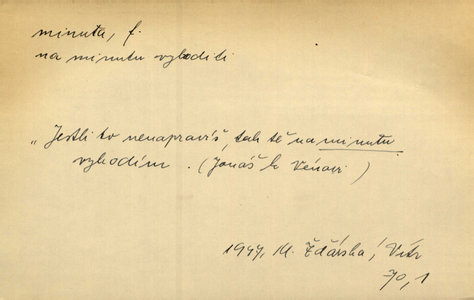 minuta, f.
na minutu vyhoditi
„Jestli to nenapravíš, tak tě na minutu
vyhodím. (Jonáš k Vénovi)
1947, M. Žďárská, Vítr
70, 1